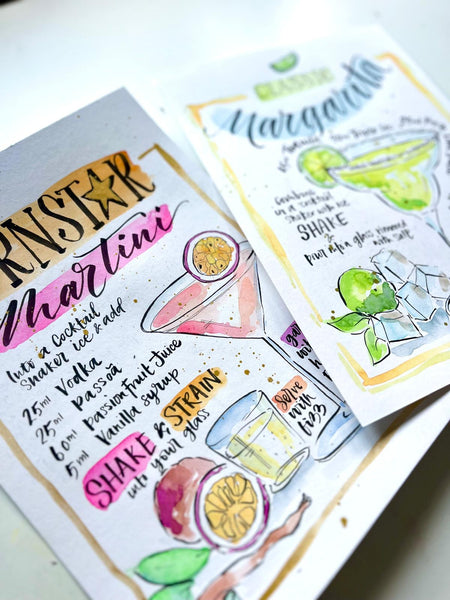 RNSTAR
Martini
Into a cocktail
Shaker ice & add
25ml Vodka
25ml Passoã
60ml Passionfruit Juice
5ml Vanilla syrup
SHAKE & STRAIN
into your glass
Serve
with
fizz
CLASSIC
Margarita
Combine
in a cocktail
shaker with ice
SHAKE
&
pour into a glass rimmed
with salt